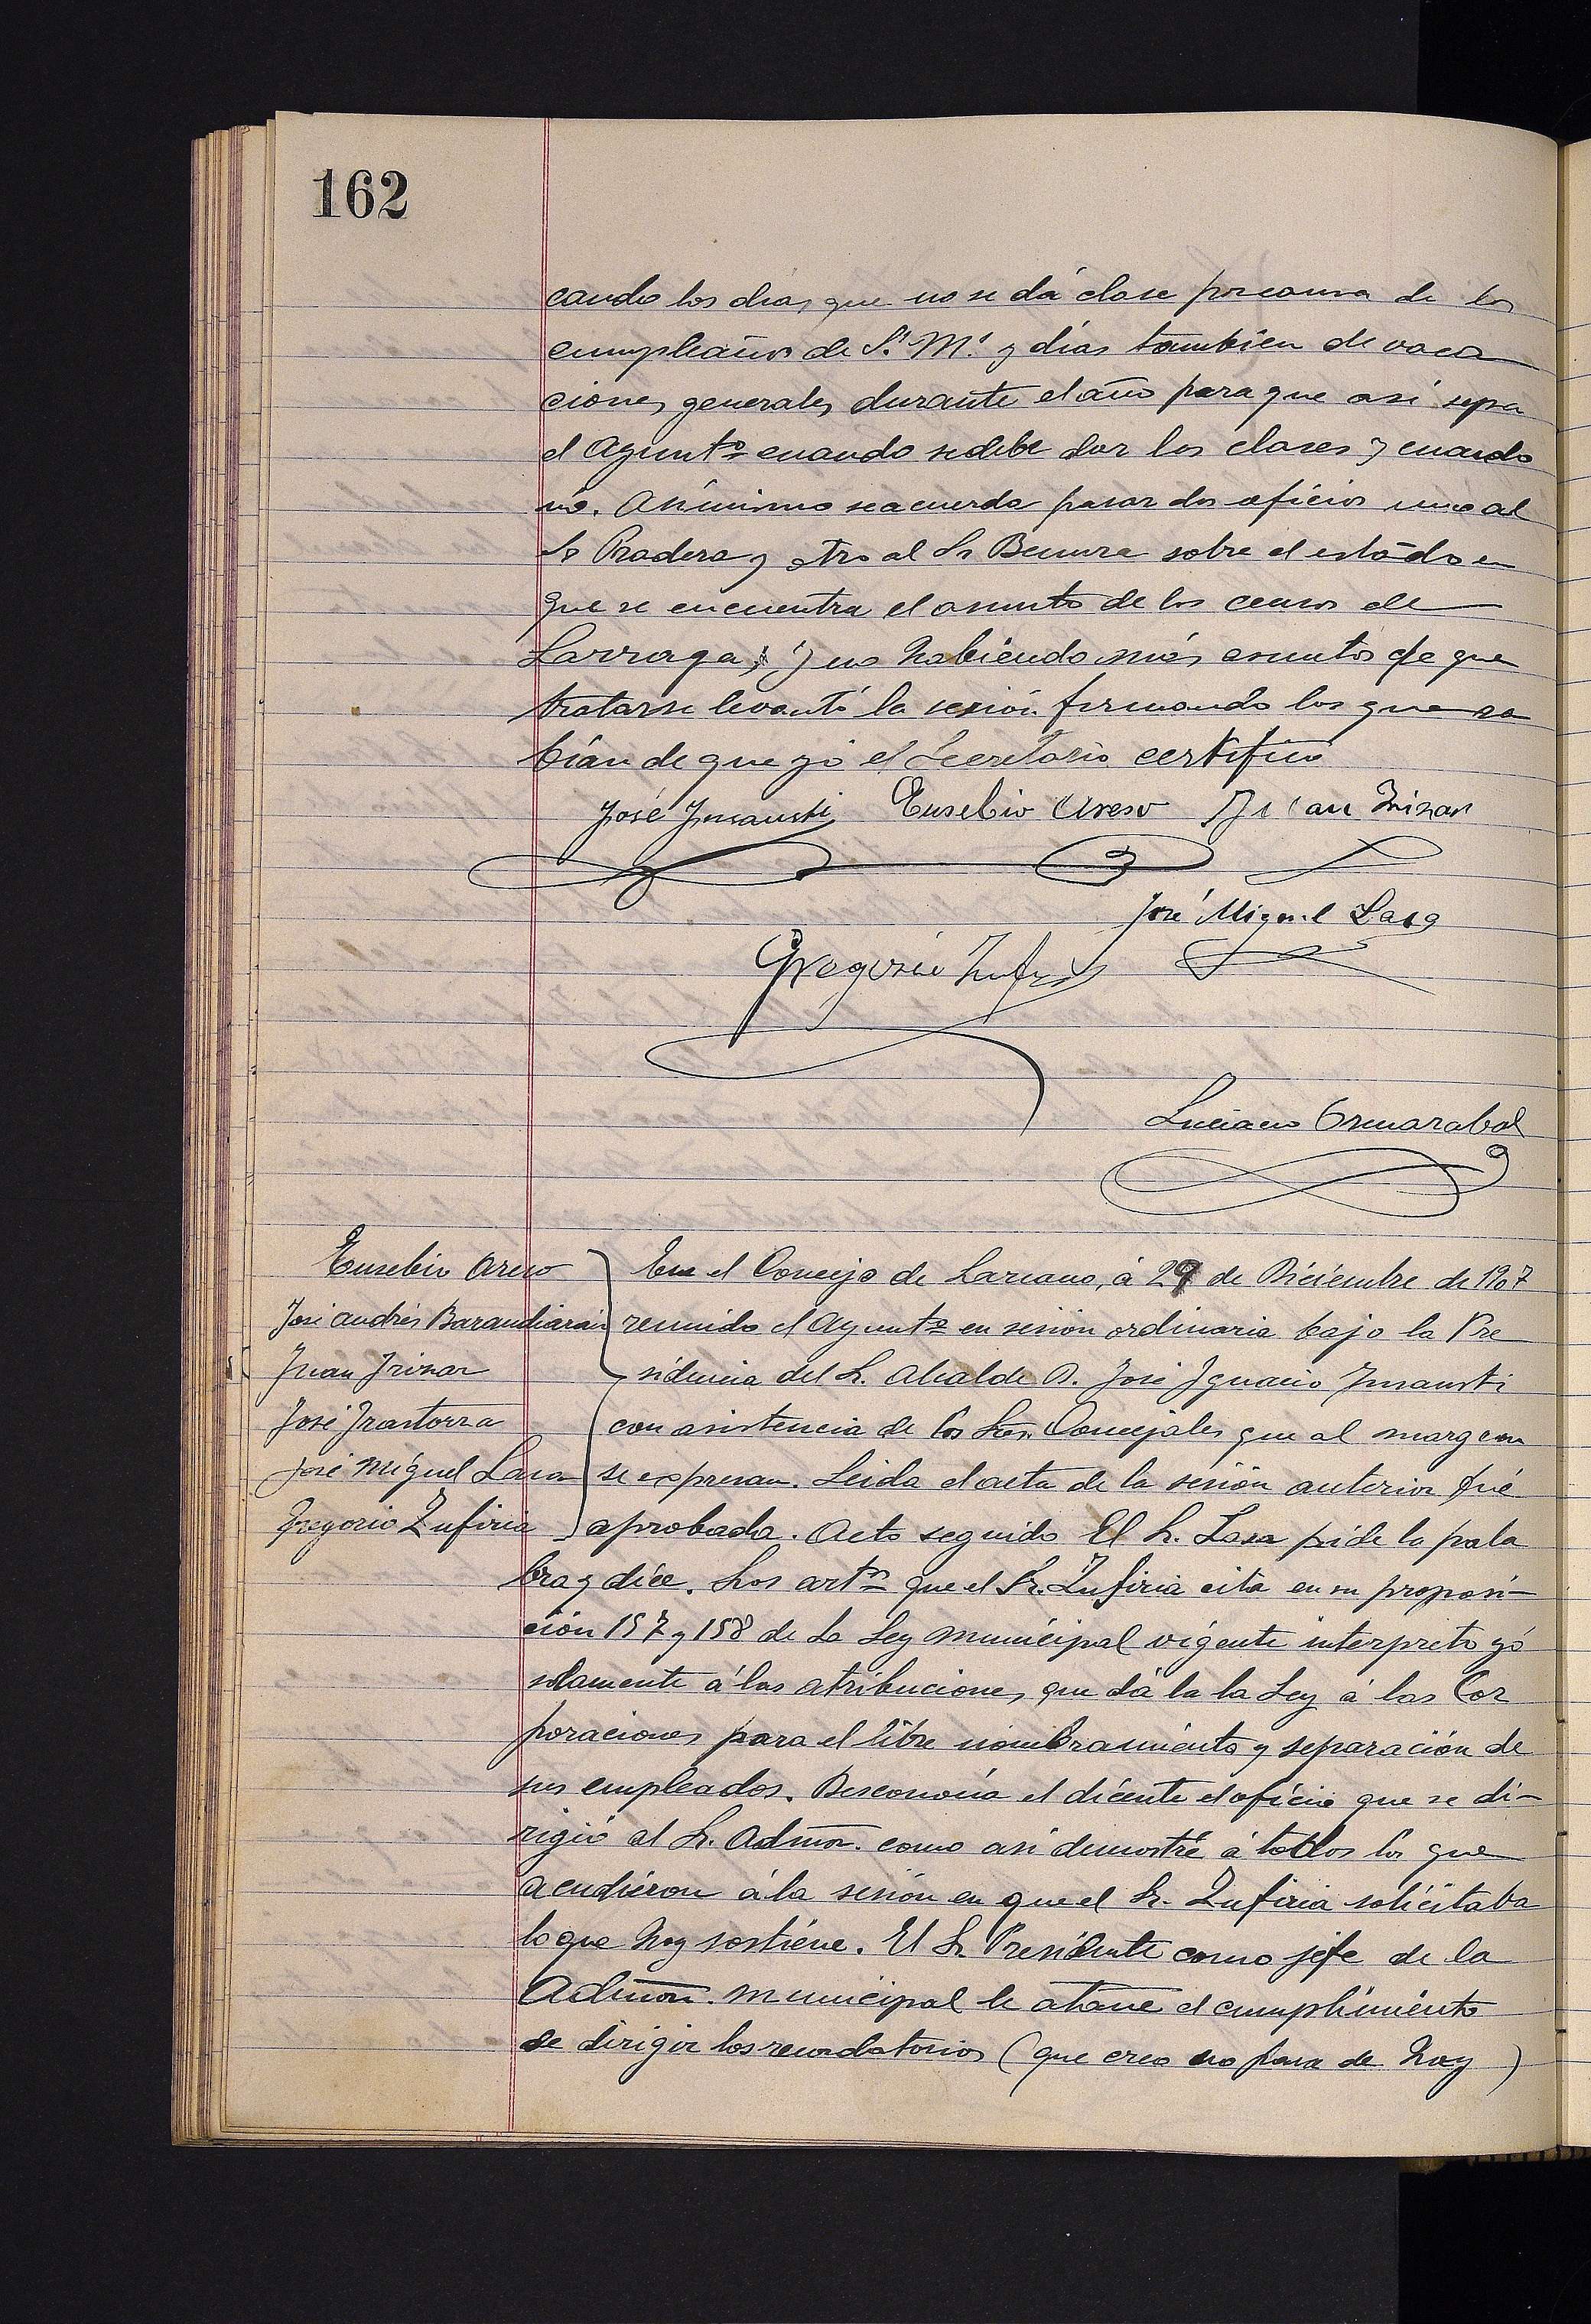 162
cando los dias que no se dá clase por causa de los
cumpleaños de S.s M.s y días también de vaca
ciones generales durante el año para que asi sepa
el Ayunto cuando se debe dar las clases y cuando
nó. Asimismo se acuerda pasar dos oficios uno al
Sr Pradera y otro al Sr Benura sobre el estado en
que se encuentra el asunto de los censos de
Larraga, y no habiendo más asuntos de que
tratarse levantó la sesión firmando los que sa
bían de que yó el Secretario certifico
José Insausti Eusebio Areso Juan Irizar
José Miguel Lasa
Gregorio Zufiria
Luciano Ormazabal
Eusebio Areso
José Andrés Barandiarán
Juan Irizar
José Irastorza
José Miguel Lasa
Gregorio Zufiria
En el Concejo de Lazcano, á 29 de Diciembre de 1907
reunido el Ayunto en sesión ordinaria bajo la Pre
sidencia del Sr. Alcalde D. José Ignacio Insausti
con asistencia de los Sres. Concejales que al margen
se expresan. Leida el acta de la sesión anterior fué
aprobada. Acto seguido El Sr. Lasa pide la pala
bra y dice. Los arts que el Sr. Zufiria cita en su proposi-
ción 157 y 158 de La Ley municipal vigente interpreto yó
solamente á las atribuciones que dá la la Ley á las Cor
poraciones para el libre nombramiento y separación de
sus empleados. Desconocia el dicente el oficio que se di-
rigió al Sr. Admor. como asi demostré á todos los que
acudieron á la sesión en que el Sr. Zufiria solicitaba
lo que hoy sostiene. El Sr. Presidente como jefe de la
Admon. municipal le atañe el cumplimiento
de dirigir los recordatorios (que creo no pasa de hoy)